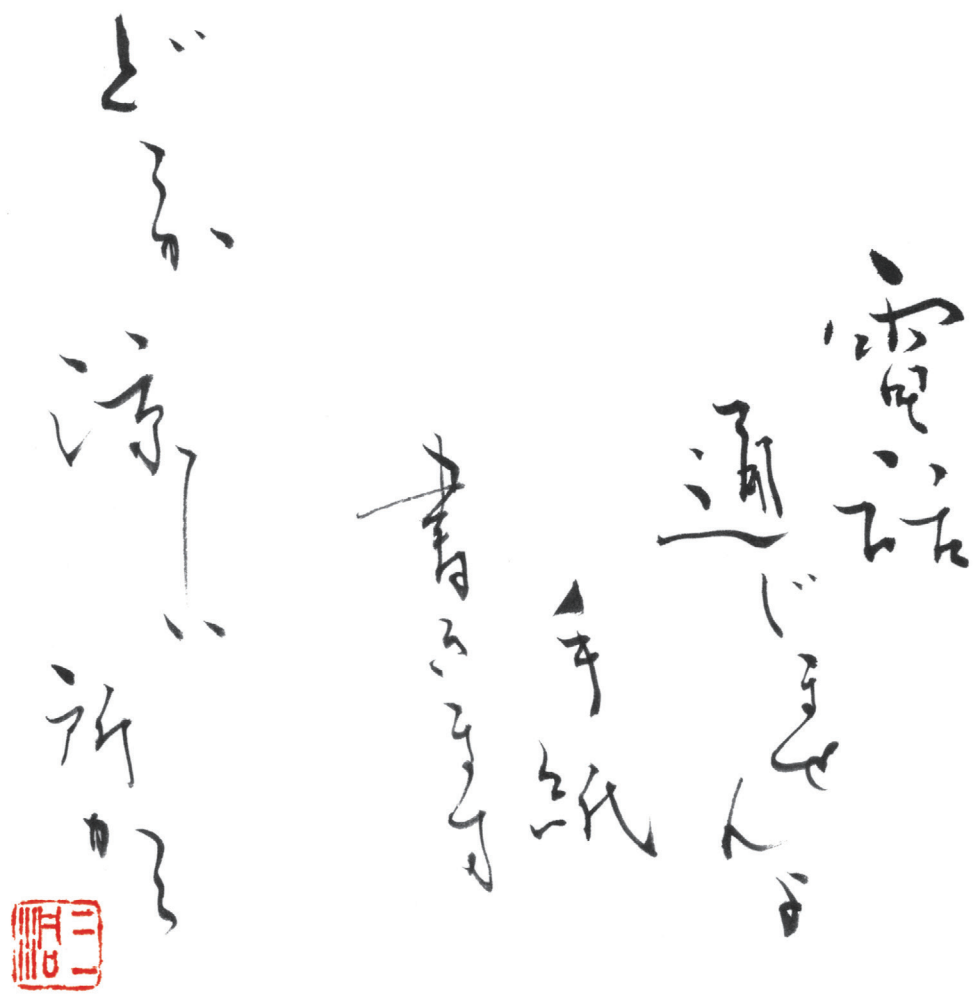 電話
通じませんよ
手紙
書きます
どこか涼しい所から